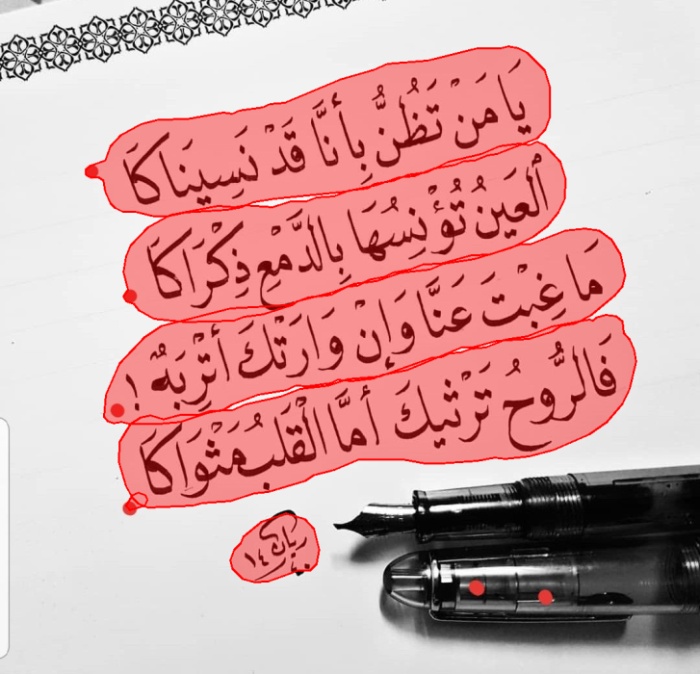 يَا مَنْ تَظُنُّ بِأنَّا قَدْ نَسِينَاكَا
ألعَينُ تُؤْنِسُهَا بِالدَّمْعِ ذِكْرَاكَا
مَا غِبْتَ عَنَّا وَإن وَارَتْكَ أتْرِبَةٌ !
فَالرُّوحُ تَرْثيكَ أمَّا الْقَلبُ مَثْوَاكَا